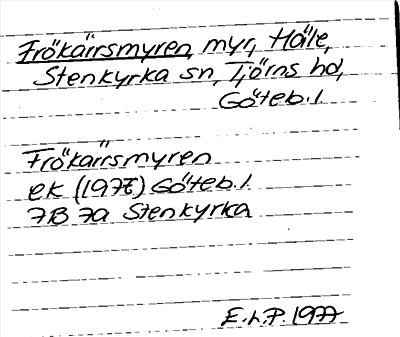 Frökärrsmyren, myr, Häle,
Stenkyrka sn, Tjörns hd,
Göteb. l
Frökärrsmyren
ek (1977) Göteb. l.
7B 7a Stenkyrka
E.L.P. 1977